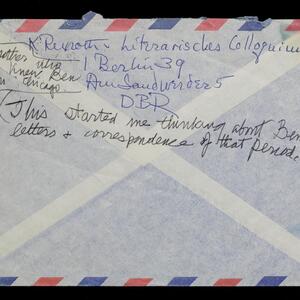 K Rexroth c/o Literarisches Colloquium
1 Berlin 39
Am Sandwerder 5
DBR
another who
knew Ben
in Chicago
This started me thinking about Ben
letters & correspondence of that period.